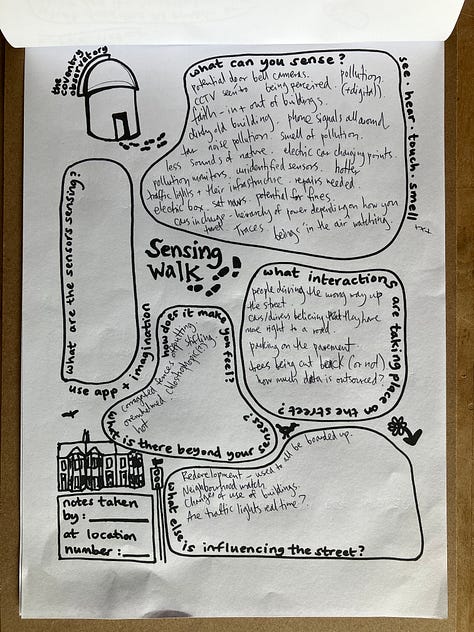 the coventry observatory
what can you sense?
see · hear · touch · smell
potential door bell cameras. pollution.
CCTV seen to being perceived. (+digital)
faith - in + out of buildings.
dirty old building. phone signals all around
tar noise pollution. smell of pollution.
less sounds of nature. electric car charging points.
pollution monitors. unidentified sensors. hotter
traffic lights + their infrastructure. repairs needed.
electric box. sat navs. potential for fines.
cars in charge - hierarchy of power depending on how you
travel. Traces beings in the air watching.
what are the sensors sensing?
use app + imagination
Sensing
walk
how does it make you feel?
corrugated fences offputting
overwhelmed
hot
what is there beyond your senses?
what interactions
are taking place
on the street?
people driving the wrong way up
the street.
cars/drivers believing that they have
more right to a road.
parking on the pavement.
trees being cut back (or not)
how much data is outsourced?
what else
is influencing the street?
Redevelopment - used to all be boarded up.
Neighbourhood watch
Changes of use of buildings.
Are traffic lights real time?
notes taken
by:
at location
number: